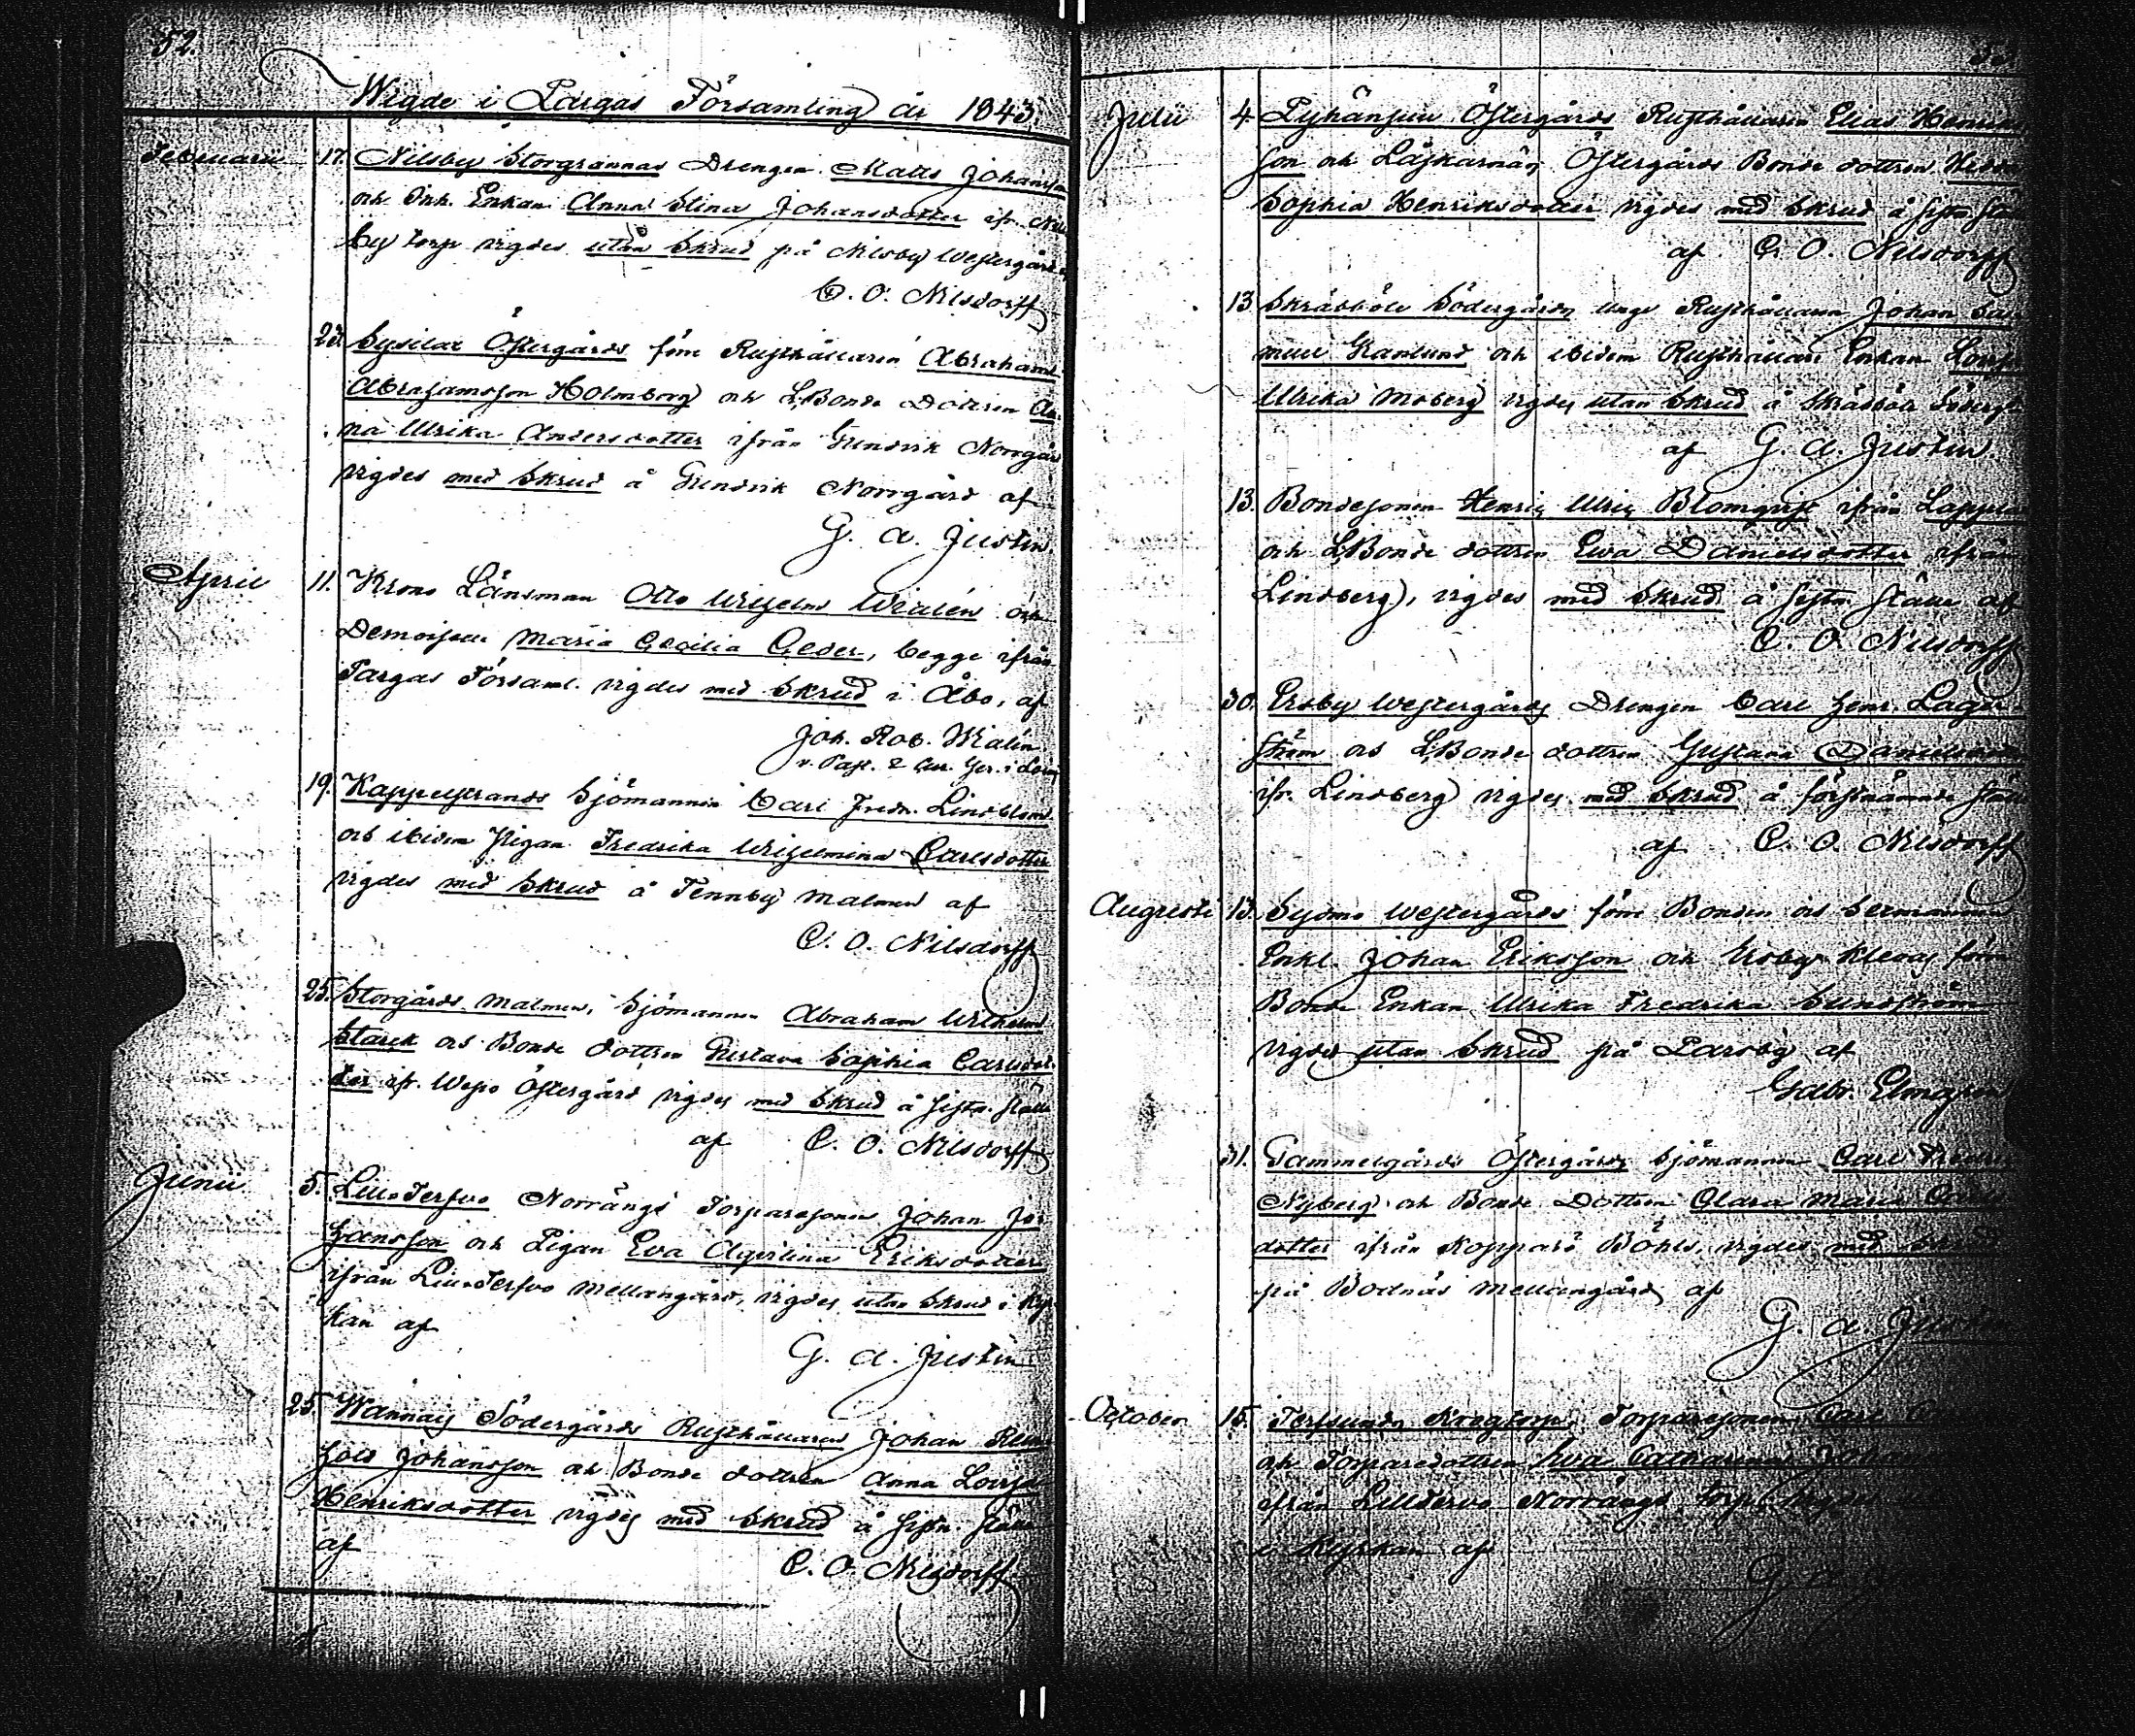 52.
Wigde i Pargas Församling år 1843.
Februarii 17. Nilsby Storgrannas Drengen Matts Johansson
och Inh. Enkan Anna Stina Johansdotter ifr. Nils
by torp vigdes utan Skrud på Nilsby Westergård
C. O. Nilsdorff
23. Sysilax Östergårds förre Rusthållaren Abraham
Abrahamsson Holmberg och L.Bonde Dottren An
na Ulrika Andersdotter ifrån Gundvik Norrgård
vigdes med Skrud å Gundvik Norrgård af
G. A. Justin.
April 11. Krono Länsman Otto Wilhelm Walén och
Demoiselle Maria Cecilia Ceder, begge ifrån
Pargas Församl. vigdes med Skrud i Åbo, af
Joh. Rob. Malín
19. Kappelstrands Sjömannen Carl Fredr. Lindblom
och ibidem Pigan Fredrika Wilhelmina Carlsdotter
vigdes med Skrud å Tennby malmen af
C. O. Nilsdorff
25. Storgårds malmen, Sjömannen Abraham Wilhelm
Starck och Bonde dottren Gustava Sophia Carlsdot
ter ifr. Wepo Östergård vigdes med Skrud å sistn. ställe
af C. O. Nilsdorff
Junii 5. Lill-Tervo Norrängs Torparesonen Johan Jo
hansson och Pigan Eva Agrelina Eriksdotter
ifrån Lill-Tervo mellangård, vigdes utan Skrud i Kyr
kan af
G. A. Justin
25. Wannais Södergårds Rusthållaren Johan Rein
hold Johansson och Bonde dottren Anna Lovisa
Henriksdotter vigdes med Skrud å sistn. ställe
af
C. O. Nilsdorff
Julii 4. Pyhänsuu Östergårds Rusthållaren Elias Henrik
son och Läskarnäs Östergårds Bonde dottren
Sophia Henriksdotter vigdes med Skrud å sistn.
af C. O. Nilsdorff
13 Skräbböle Södergårds unge Rusthållaren Johan Sa
muel Granlund och ibidem Rusthållare Enkan Lovisa
Ulrika Moberg vigdes utan Skrud å Skräbböle
af G. A. Justin.
13. Bondesonen Henric Ulric Blomqvist ifrån
och L.Bonde dottren Ewa Danielsdotter ifrån
Lindberg, vigdes med Skrud å sistn. ställe af
C. O. Nilsdorff
30. Ersby Westergårds Drengen Carl Henr. Lager
ström och L.Bonde dottren Gustava Danielsdotter
ifr. Lindberg vigdes med Skrud å förstnämnde ställe
af C. O. Nilsdorff
Augusti 13. Sydmo Westergårds förre Bonden och
Enkl. Johan Eriksson och Ersby Klevas förre
Bonde Enkan Ulrika Fredrika Sundström
vigdes utan Skrud på Parsby af
Gabr. Elmgren
31. Gammelgårds Östergårds Sjömannen Carl Fredric
Nyberg och Bonde Dottren Clara Maria Carls
dotter ifrån Kopparö Böhls, vigdes med Skrud
på Bodnäs mellangård af
G. A. Justin
October 15. Terfsunds Krogtorp, Torparesonen Carl
och Torparedottren Eva Catharina
ifrån Lilltervo Norrängs torp, vigdes
i Kyrkan af
G. A.